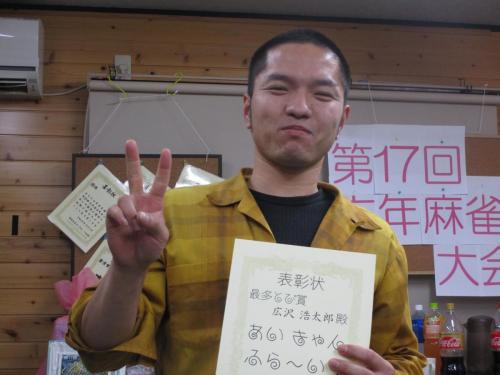 第17回
年麻雀
大会
表彰状
最多とび賞
広沢 浩太郎 殿
あい きゃん
ふら〜い